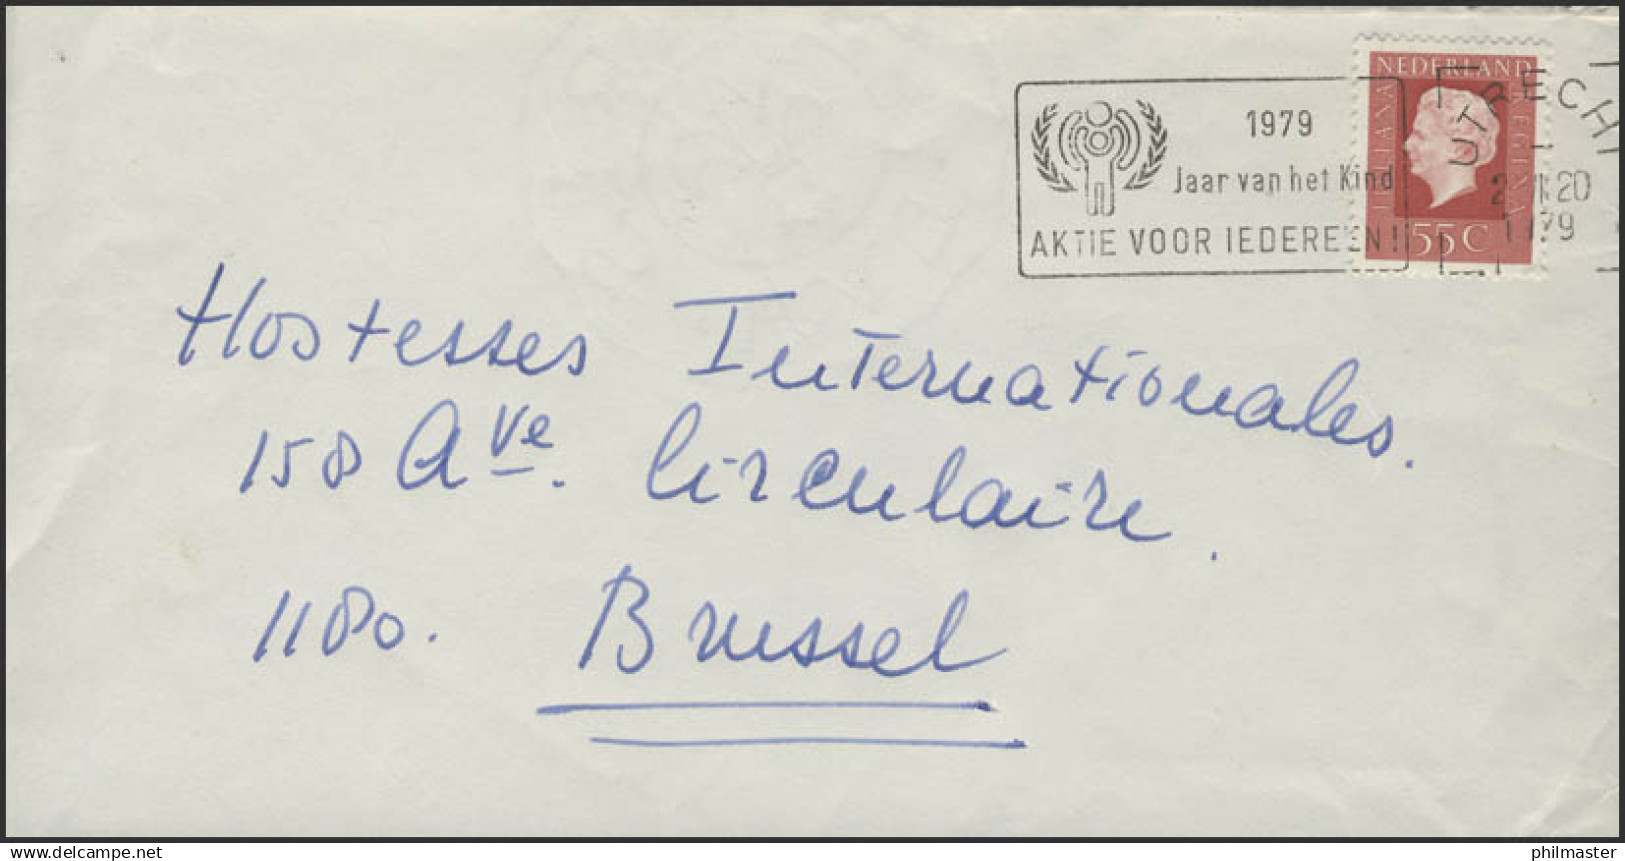 NEDERLAND
JULIANA
REGINA
55 C
UTRECHT
20
1979
1979
Jaar van het Kind
AKTIE VOOR IEDEREEN!
Hostesses Internationales.
158 Ave. Circulaire.
1180. Brussel
www.delcampe.net
philmaster